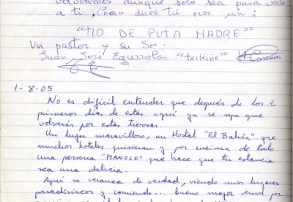 volveremos aunque solo sea para verte
a ti, Como dices tú eres un:
"TIO DE PUTA MADRE"
Un pastor y su Sr.
Juan José Eguizola "txikito"
1-8-05
No es difícil entender que después de los 2
primeros días de estar aquí ya se sepa que
volverás por estas tierras.
Un lugar maravilloso, un Hotel "El Bahía" que
muchos hoteles quisieran y por encima de todo
una persona "MANOLO" que hace que tu estancia
sea una delicia.
Aquí se veranea de verdad, viendo unos lugares
paradisíacos y comiendo... bueno mejor venid por